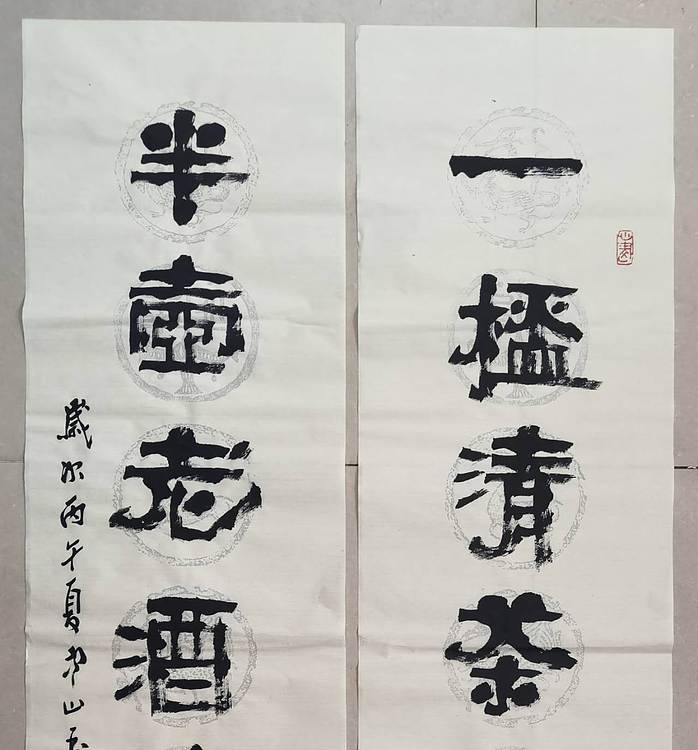 一清茶
半壺老酒
歲次丙午夏